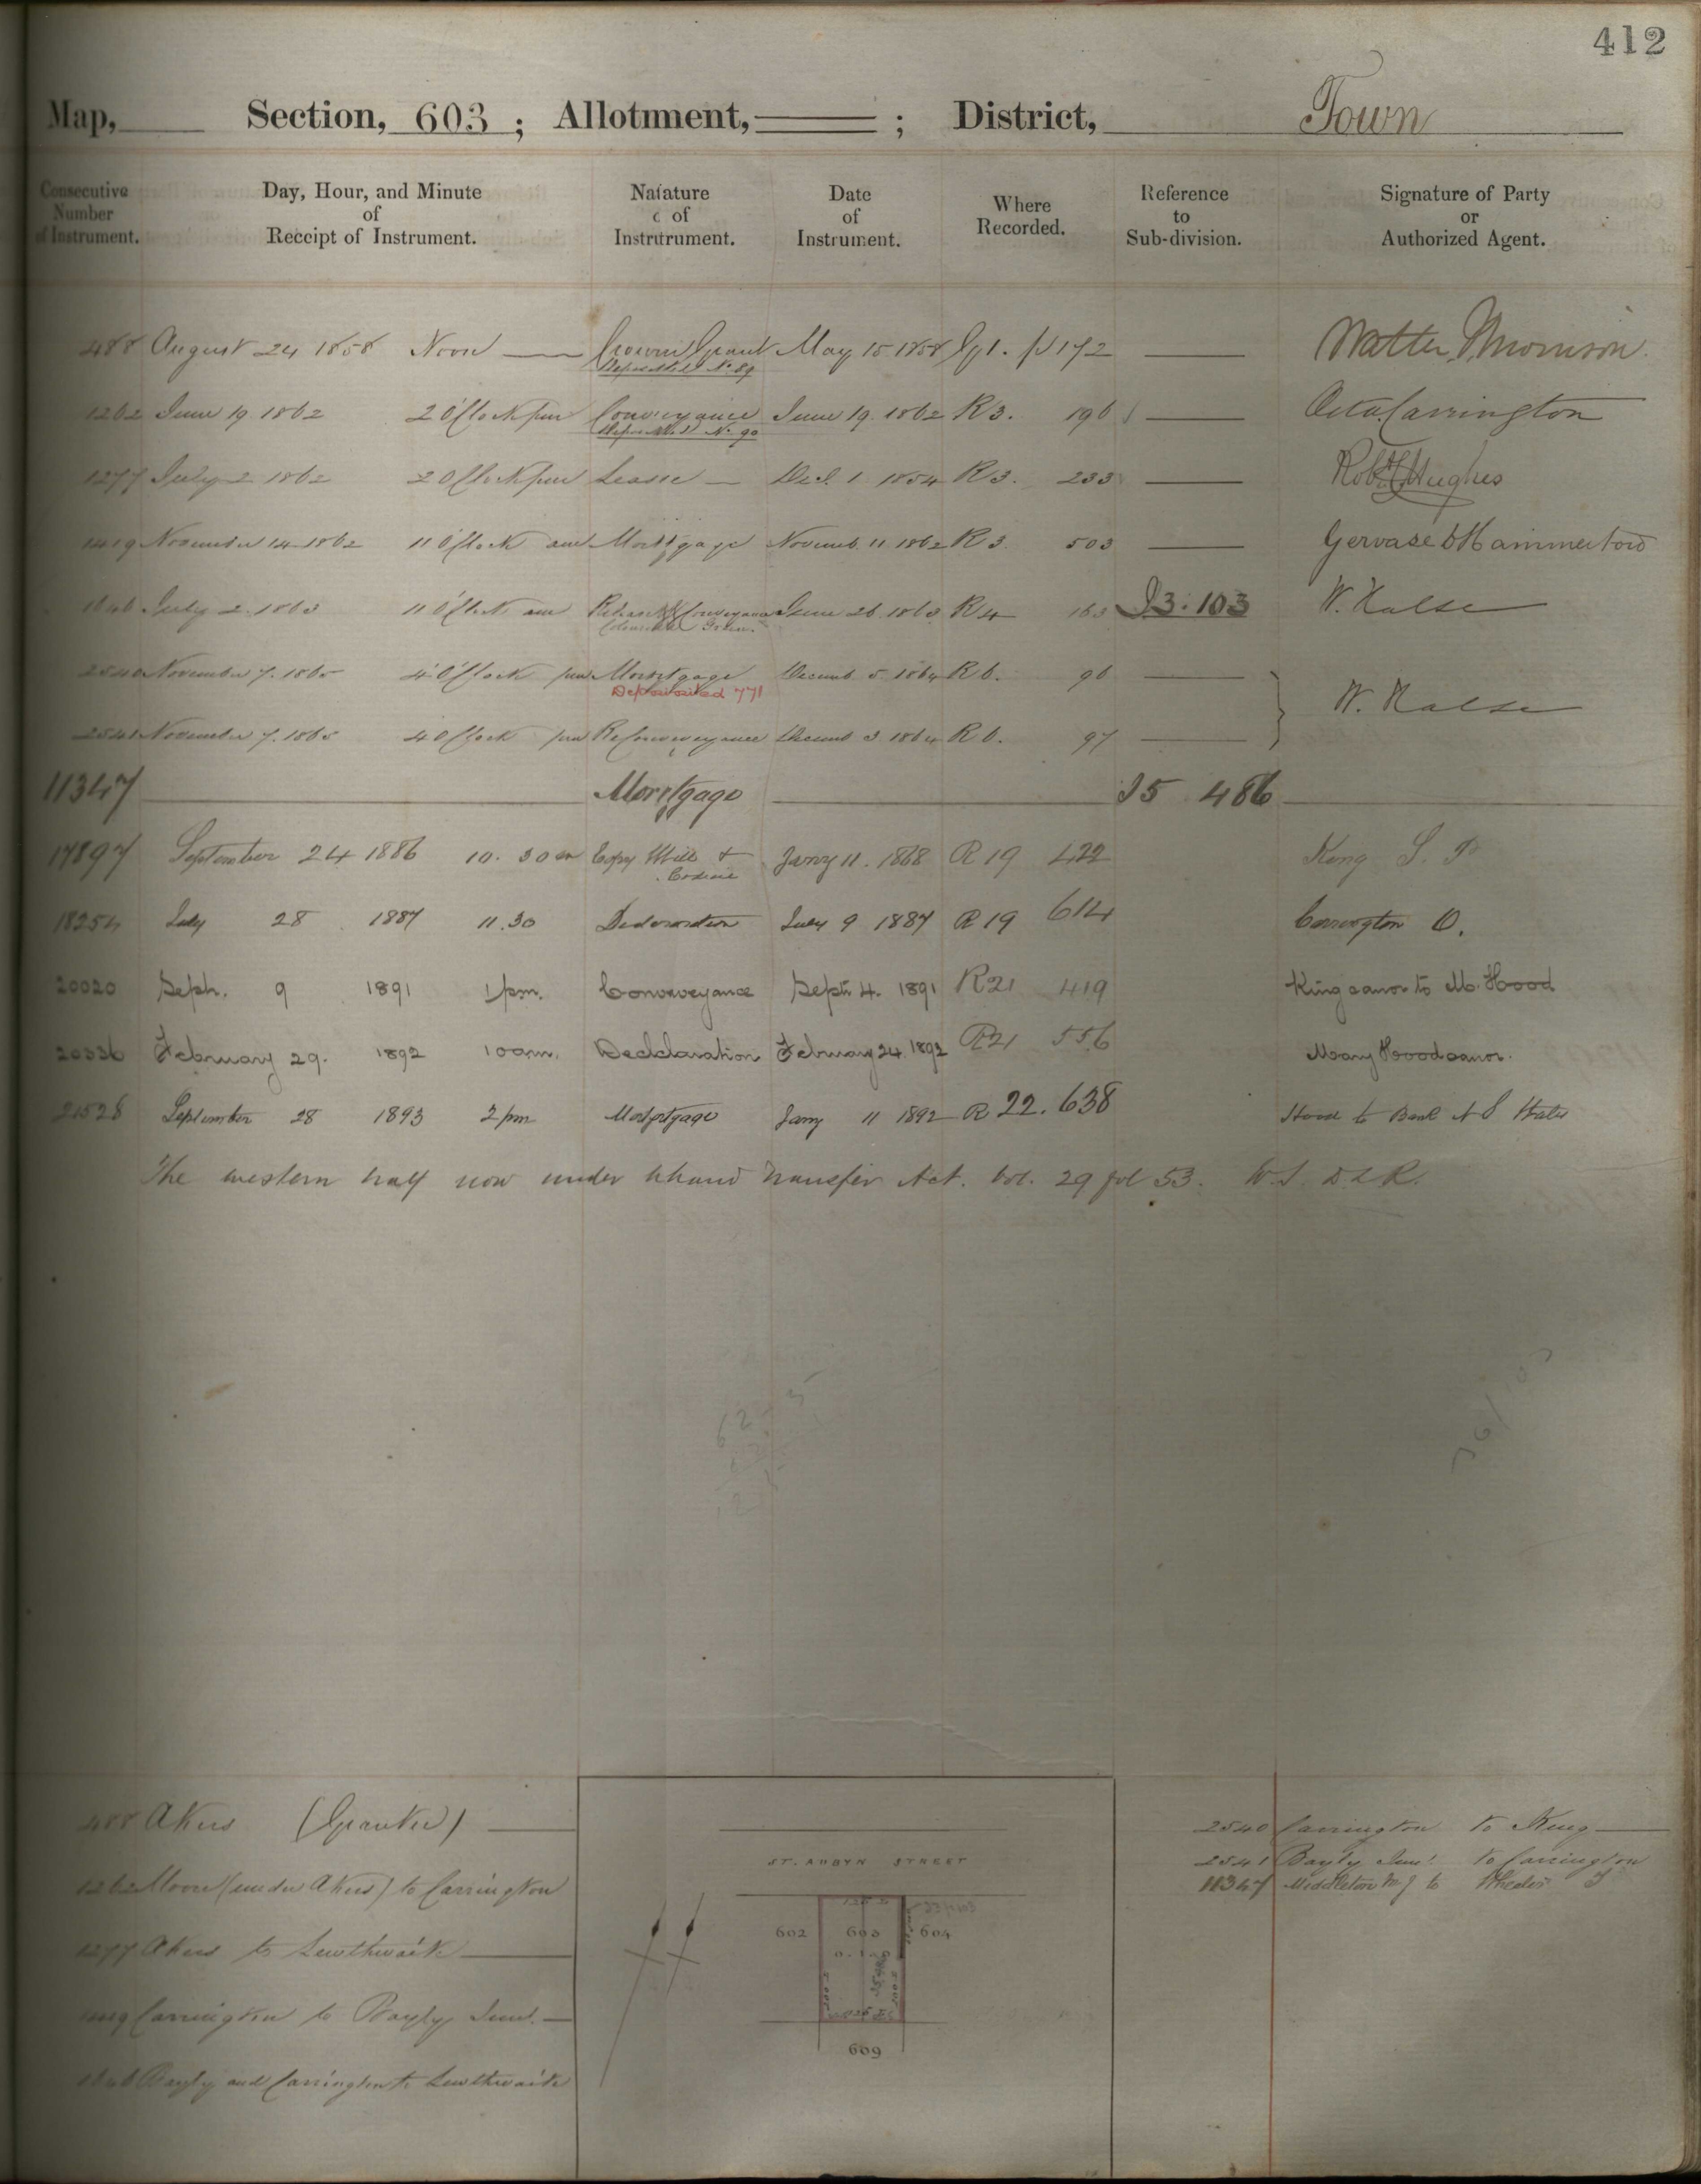 412
Map, Section, 603 ; Allotment, ; District, Town
Consecutive Number of Instrument.
Day, Hour, and Minute of Receipt of Instrument.
Nature of Instrument.
Date of Instrument.
Where Recorded.
Reference to Sub-division.
Signature of Party or Authorized Agent.
488 August 24 1858 Noon Crown Grant May 15 1858 G1. p 172 Walter Morrison.
Deposited No. 89
1262 June 19. 1862 2 O'Clock pm Conveyance June 19. 1862 R3. 196 Octs. Carrington
Deposited No. 90
1277 July 2 1862 2 O'Clock pm Lease Dec. 1 1854 R3. 233 Robt. Hughes
1419 November 14 1862 11 O'Clock am Mortgage Novemb. 11 1862 R3. 503 Gervase D Hammerton
1646 July 2. 1863 11 O'Clock am Release & Conveyance June 26. 1863 R4 163 I3:103 W. Halse
2540 November 7. 1865 4 O'Clock pm Mortgage Decemb 5. 1864 R6. 96
Deposited 771
W. Halse
2541 November 7. 1865 4 O'Clock pm Reconveyance Decemb 3. 1864 R6. 97
11347 Mortgage I5 486
17897 September 24 1886 10.30 am Copy Will & Janry 11. 1868 R19 422 King
18254 July 28 1887 11.30 Declaration July 9 1887 R19 614 Carrington O.
20020 Sept. 9 1891 1 pm. Conveyance Sept. 4. 1891 R21 419 King & anor to M. Hood
20336 February 29. 1892 10 am. Declaration February 24. 1892 R21 556 Mary Hood & anor.
21528 September 28 1893 2 pm Mortgage Janry 11 1892 R22. 638 Hood to Bank N S Wales
The western half now under Land Transfer Act. Vol. 29 fol 53. W.S. D.L.R.
488 Akers (Grantee)
1262 Moore (under Akers) to Carrington
1277 Akers to Lewthwaite
1419 Carrington to Bayly Junr.
1646 Bayly and Carrington to Lewthwaite
ST. AUBYN STREET
602
603
604
609
2540 Carrington to King
2541 Bayly Junr. to Carrington
11347 Middleton M J to Wheeler J